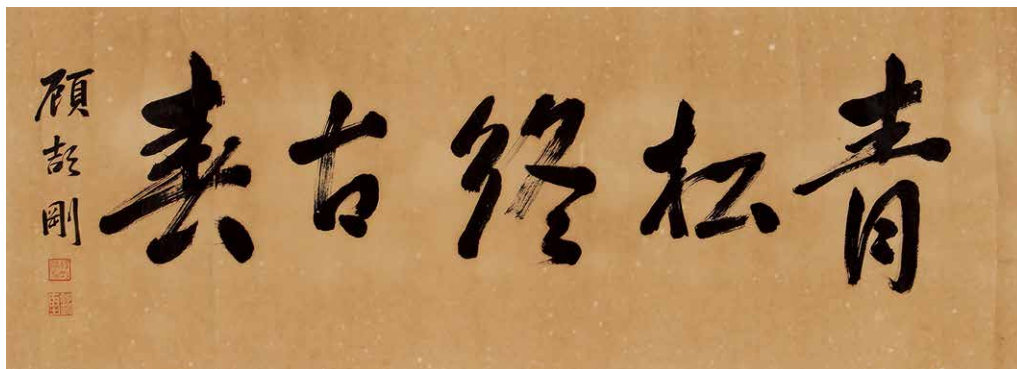 青松終古春
顧頡剛